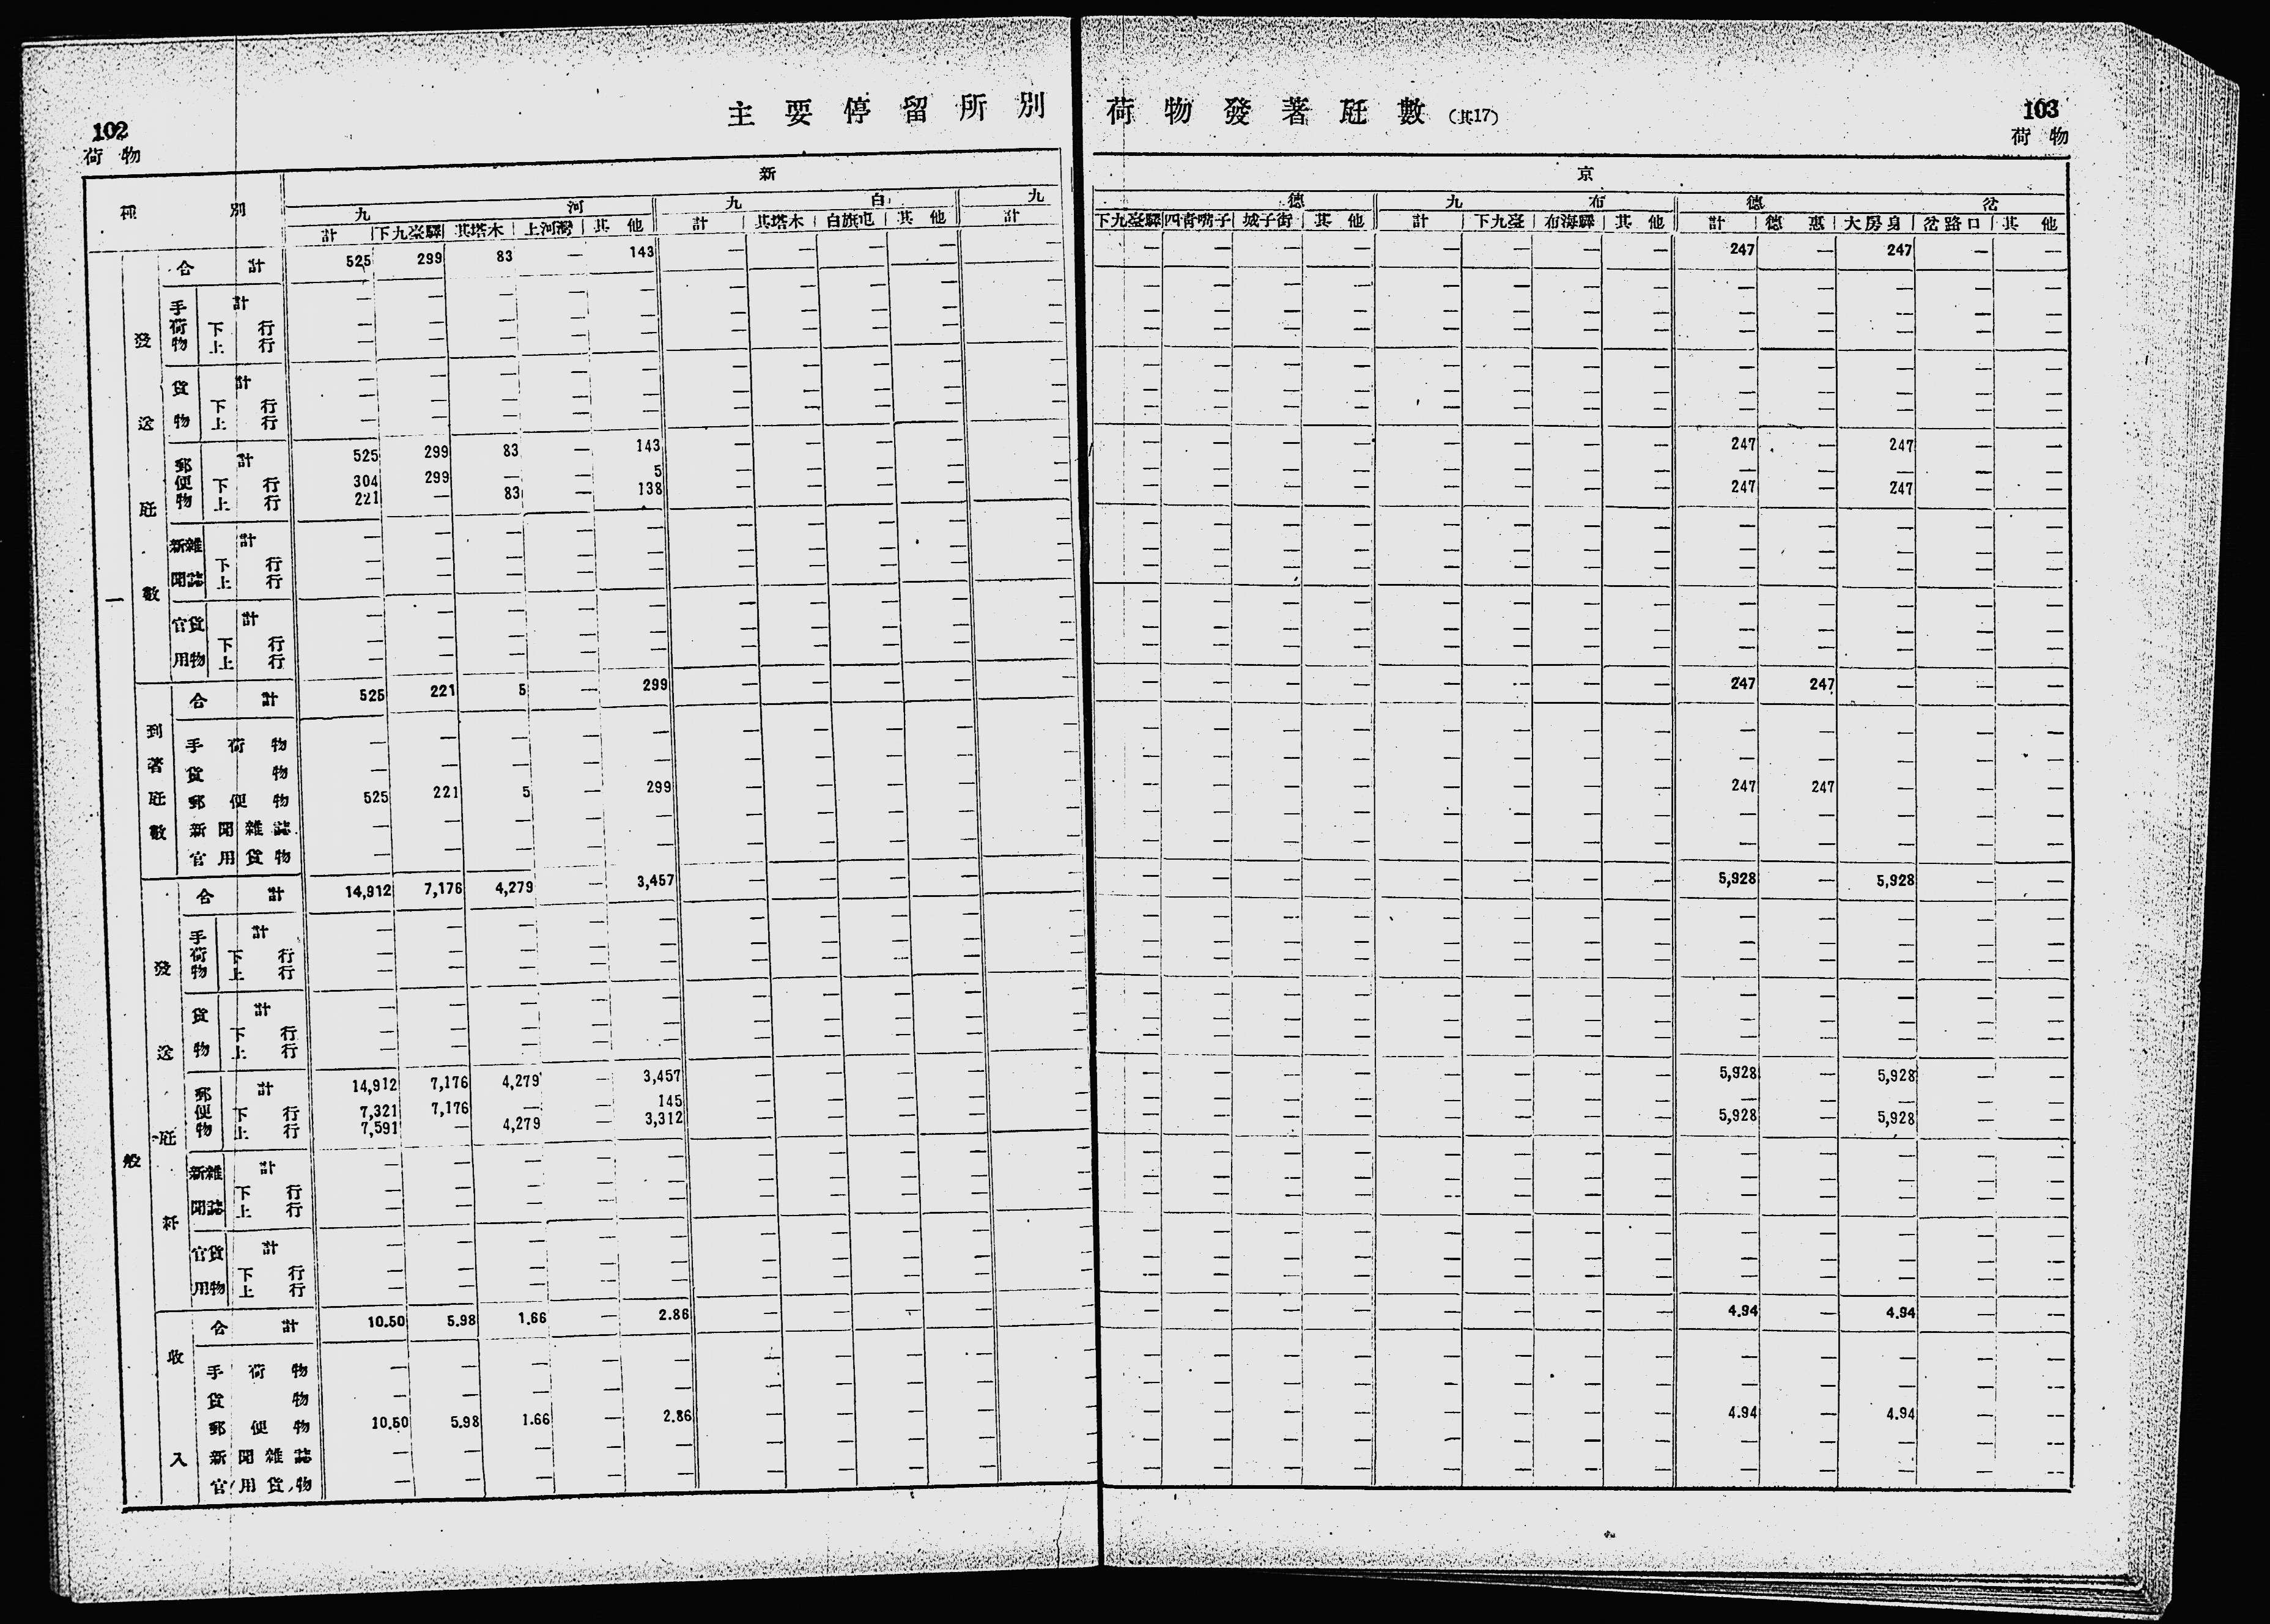 102
荷物
主要停留所別
荷物發著瓩數(其17)
103
荷物
種別
新
京
九河
九白
九
德
九布
德岔
計 下九臺驛 其塔木 上河灣 其他 計 其塔木 白旗屯 其他 計
下九臺驛 四青嘴子 城子街 其他 計 下九臺 布海驛 其他 計 德惠 大房身 岔路口 其他
一般
發送瓩數
合計 525 299 83 — 143 — — — — —
— — — — — — — — 247 — 247 — —
手荷物 計 — — — — — — — — — —
— — — — — — — — — — — — —
下行 — — — — — — — — — —
— — — — — — — — — — — — —
上行 — — — — — — — — — —
— — — — — — — — — — — — —
貨物 計 — — — — — — — — — —
— — — — — — — — — — — — —
下行 — — — — — — — — — —
— — — — — — — — — — — — —
上行 — — — — — — — — — —
— — — — — — — — — — — — —
郵便物 計 525 299 83 — 143 — — — — —
— — — — — — — — 247 — 247 — —
下行 304 299 — — 5 — — — — —
— — — — — — — — — — — — —
上行 221 — 83 — 138 — — — — —
— — — — — — — — 247 — 247 — —
新聞雜誌 計 — — — — — — — — — —
— — — — — — — — — — — — —
下行 — — — — — — — — — —
— — — — — — — — — — — — —
上行 — — — — — — — — — —
— — — — — — — — — — — — —
官用貨物 計 — — — — — — — — — —
— — — — — — — — — — — — —
下行 — — — — — — — — — —
— — — — — — — — — — — — —
上行 — — — — — — — — — —
— — — — — — — — — — — — —
到著瓩數
合計 525 221 5 — 299 — — — — —
— — — — — — — — 247 247 — — —
手荷物 — — — — — — — — — —
— — — — — — — — — — — — —
貨物 — — — — — — — — — —
— — — — — — — — — — — — —
郵便物 525 221 5 — 299 — — — — —
— — — — — — — — 247 247 — — —
新聞雜誌 — — — — — — — — — —
— — — — — — — — — — — — —
官用貨物 — — — — — — — — — —
— — — — — — — — — — — — —
發送瓩粁
合計 14,912 7,176 4,279 — 3,457 — — — — —
— — — — — — — — 5,928 — 5,928 — —
手荷物 計 — — — — — — — — — —
— — — — — — — — — — — — —
下行 — — — — — — — — — —
— — — — — — — — — — — — —
上行 — — — — — — — — — —
— — — — — — — — — — — — —
貨物 計 — — — — — — — — — —
— — — — — — — — — — — — —
下行 — — — — — — — — — —
— — — — — — — — — — — — —
上行 — — — — — — — — — —
— — — — — — — — — — — — —
郵便物 計 14,912 7,176 4,279 — 3,457 — — — — —
— — — — — — — — 5,928 — 5,928 — —
下行 7,321 7,176 — — 145 — — — — —
— — — — — — — — — — — — —
上行 7,591 — 4,279 — 3,312 — — — — —
— — — — — — — — 5,928 — 5,928 — —
新聞雜誌 計 — — — — — — — — — —
— — — — — — — — — — — — —
下行 — — — — — — — — — —
— — — — — — — — — — — — —
上行 — — — — — — — — — —
— — — — — — — — — — — — —
官用貨物 計 — — — — — — — — — —
— — — — — — — — — — — — —
下行 — — — — — — — — — —
— — — — — — — — — — — — —
上行 — — — — — — — — — —
— — — — — — — — — — — — —
收入
合計 10.50 5.98 1.66 — 2.86 — — — — —
— — — — — — — — 4.94 — 4.94 — —
手荷物 — — — — — — — — — —
— — — — — — — — — — — — —
貨物 — — — — — — — — — —
— — — — — — — — — — — — —
郵便物 10.50 5.98 1.66 — 2.86 — — — — —
— — — — — — — — 4.94 — 4.94 — —
新聞雜誌 — — — — — — — — — —
— — — — — — — — — — — — —
官用貨物 — — — — — — — — — —
— — — — — — — — — — — — —